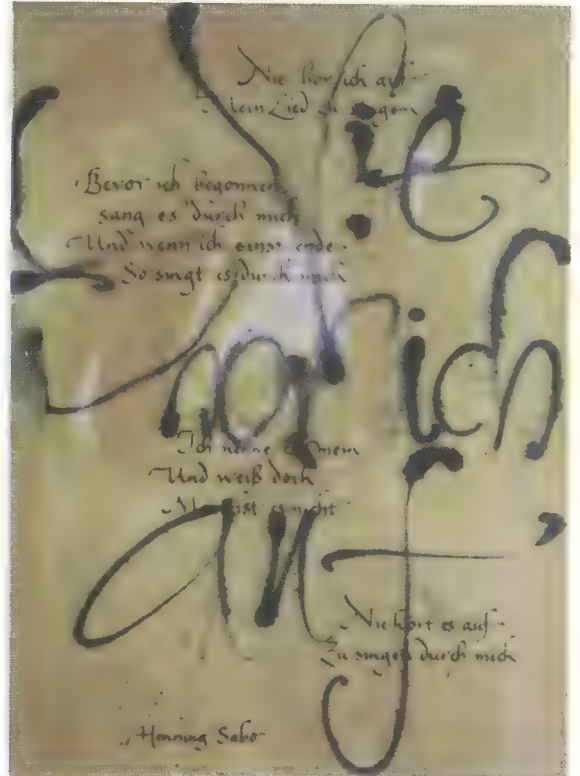 Nie
hör ich
auf,
Nie hör ich auf
Mein Lied zu
Bevor ich begonnen
sang es durch mich
Und wenn ich einst ende
So singt es durch mich
Ich nenne es mein
Und weiß doch
Mein ist es nicht
Nie hört es auf
Zu singen durch mich
Henning Sabo